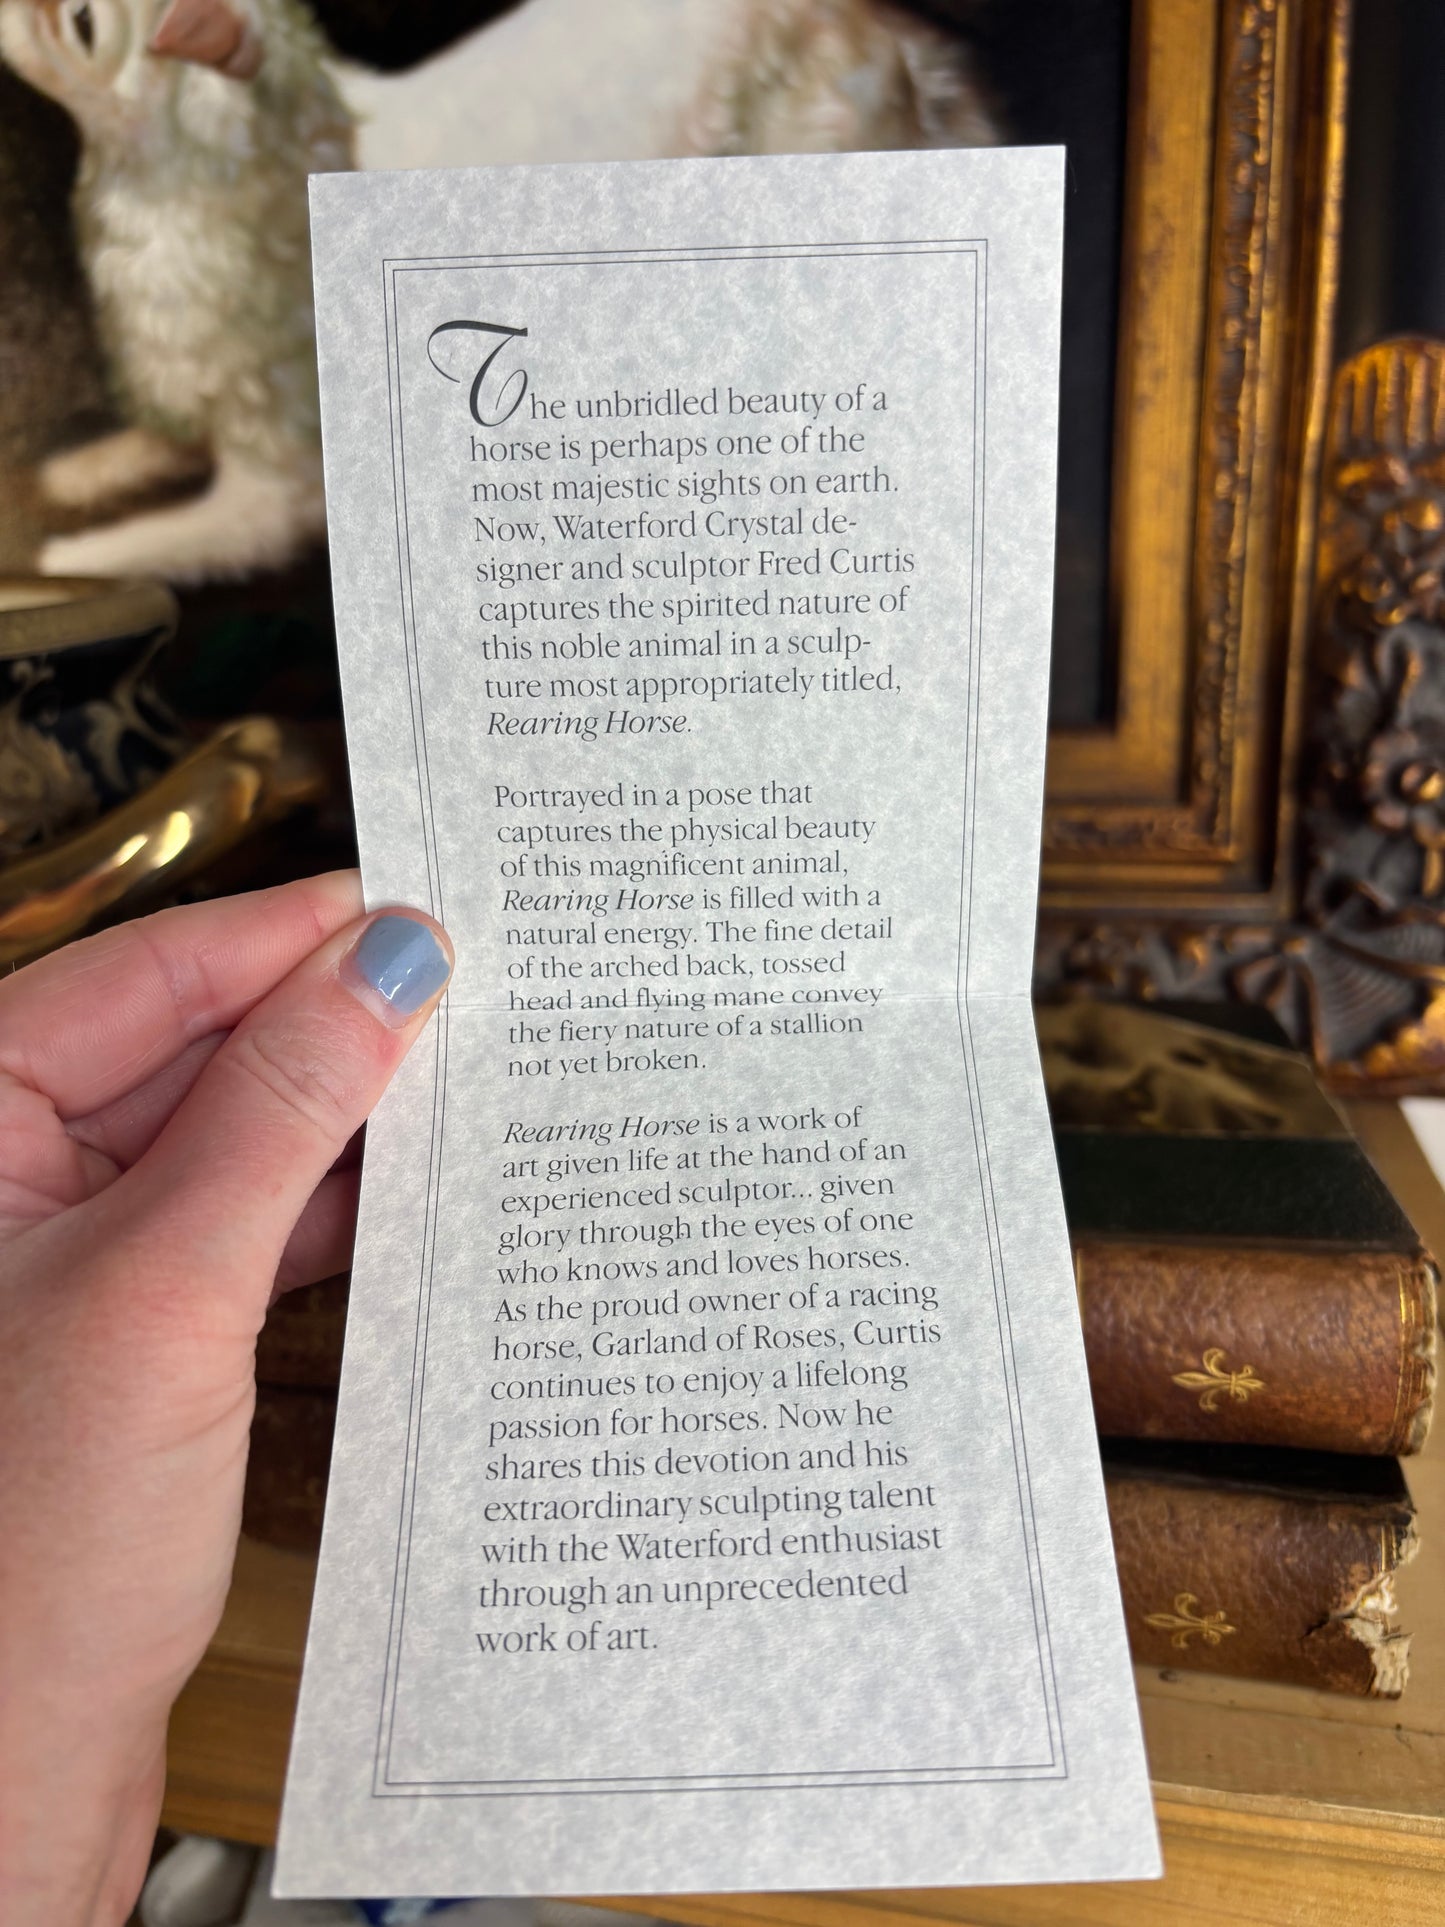 The unbridled beauty of a
horse is perhaps one of the
most majestic sights on earth.
Now, Waterford Crystal de-
signer and sculptor Fred Curtis
captures the spirited nature of
this noble animal in a sculp-
ture most appropriately titled,
Rearing Horse.
Portrayed in a pose that
captures the physical beauty
of this magnificent animal,
Rearing Horse is filled with a
natural energy. The fine detail
of the arched back, tossed
head and flying mane convey
the fiery nature of a stallion
not yet broken.
Rearing Horse is a work of
art given life at the hand of an
experienced sculptor... given
glory through the eyes of one
who knows and loves horses.
As the proud owner of a racing
horse, Garland of Roses, Curtis
continues to enjoy a lifelong
passion for horses. Now he
shares this devotion and his
extraordinary sculpting talent
with the Waterford enthusiast
through an unprecedented
work of art.